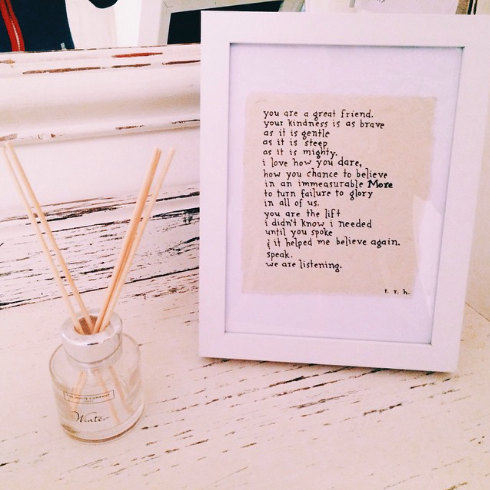 you are a great friend.
your kindness is as brave
as it is gentle
as it is steep
as it is mighty.
i love how you dare,
how you chance to believe
in an immeasurable More
to turn failure to glory
in all of us.
you are the lift
i didn't know i needed
until you spoke
& it helped me believe again.
speak.
we are listening.
t. r. h.
Winter